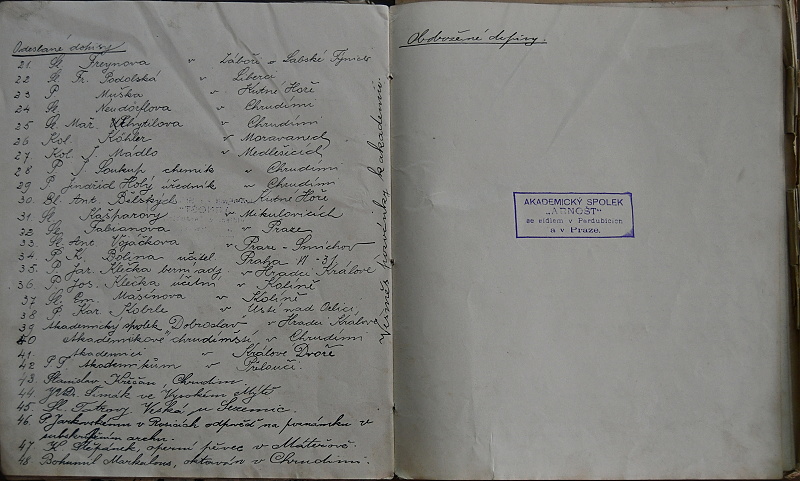 Odeslané dopisy
21. Sl. Freynova v Záboří n Labské Týnici
22 Sl. Fr. Podolská v Liberci
23 P. Muška v Kutné Hoře
24 Sl. Neudörflova v Chrudimi
25 Sl. Mař. Chytilova v Chrudimi
26 Kol. Köhler v Moravanech
27 Kol. J. Mádlo v Medlešicích
28 P. J. Soukup chemik v Chrudimi
29 P. Jindřid Holý úředník v Chrudimi
30. Sl. Ant. Bělských Kutné Hoře
31. Sl. Kašparovy v Mikulovicích
32 Sl. Fabianova v Praze
33. Sl. Ant. Vojáčkova v Praze - Smíchov
34. P. K. Bolina učitel Praha VI - 31
35. P. Jar. Klečka bern. adj. v Hradci Králové
36 P. Jos. Klečka účetní v Kolíně
37 Sl. Em. Mašínova v Kolíně
38 P. Kar. Skobrle v Ústí nad Orlicí
39 Akademický spolek "Dobroslav" v Hradci Králové
40 Akademikové chrudimští, v Chrudimi
41. Akademici v Králové Dvoře
42 P.T. Akademikům v Přelouči.
43. Stanislav Křičan, Chrudim
44 Šimák ve Vysokém Mýtě
45. Sl. Veská u Sezemic.
46. P. v Rosicích odpověď na poznámku v
subskribčním archu.
47. K. Štěpánek, operní pěvec v
48. Bohumil Markalous, oktaván v Chrudimi.
Věrněs pozvánky k akademii.
Obdržené dopisy.
AKADEMICKÝ SPOLEK
„ARNOŠT"
se sídlem v Pardubicích
a v Praze.